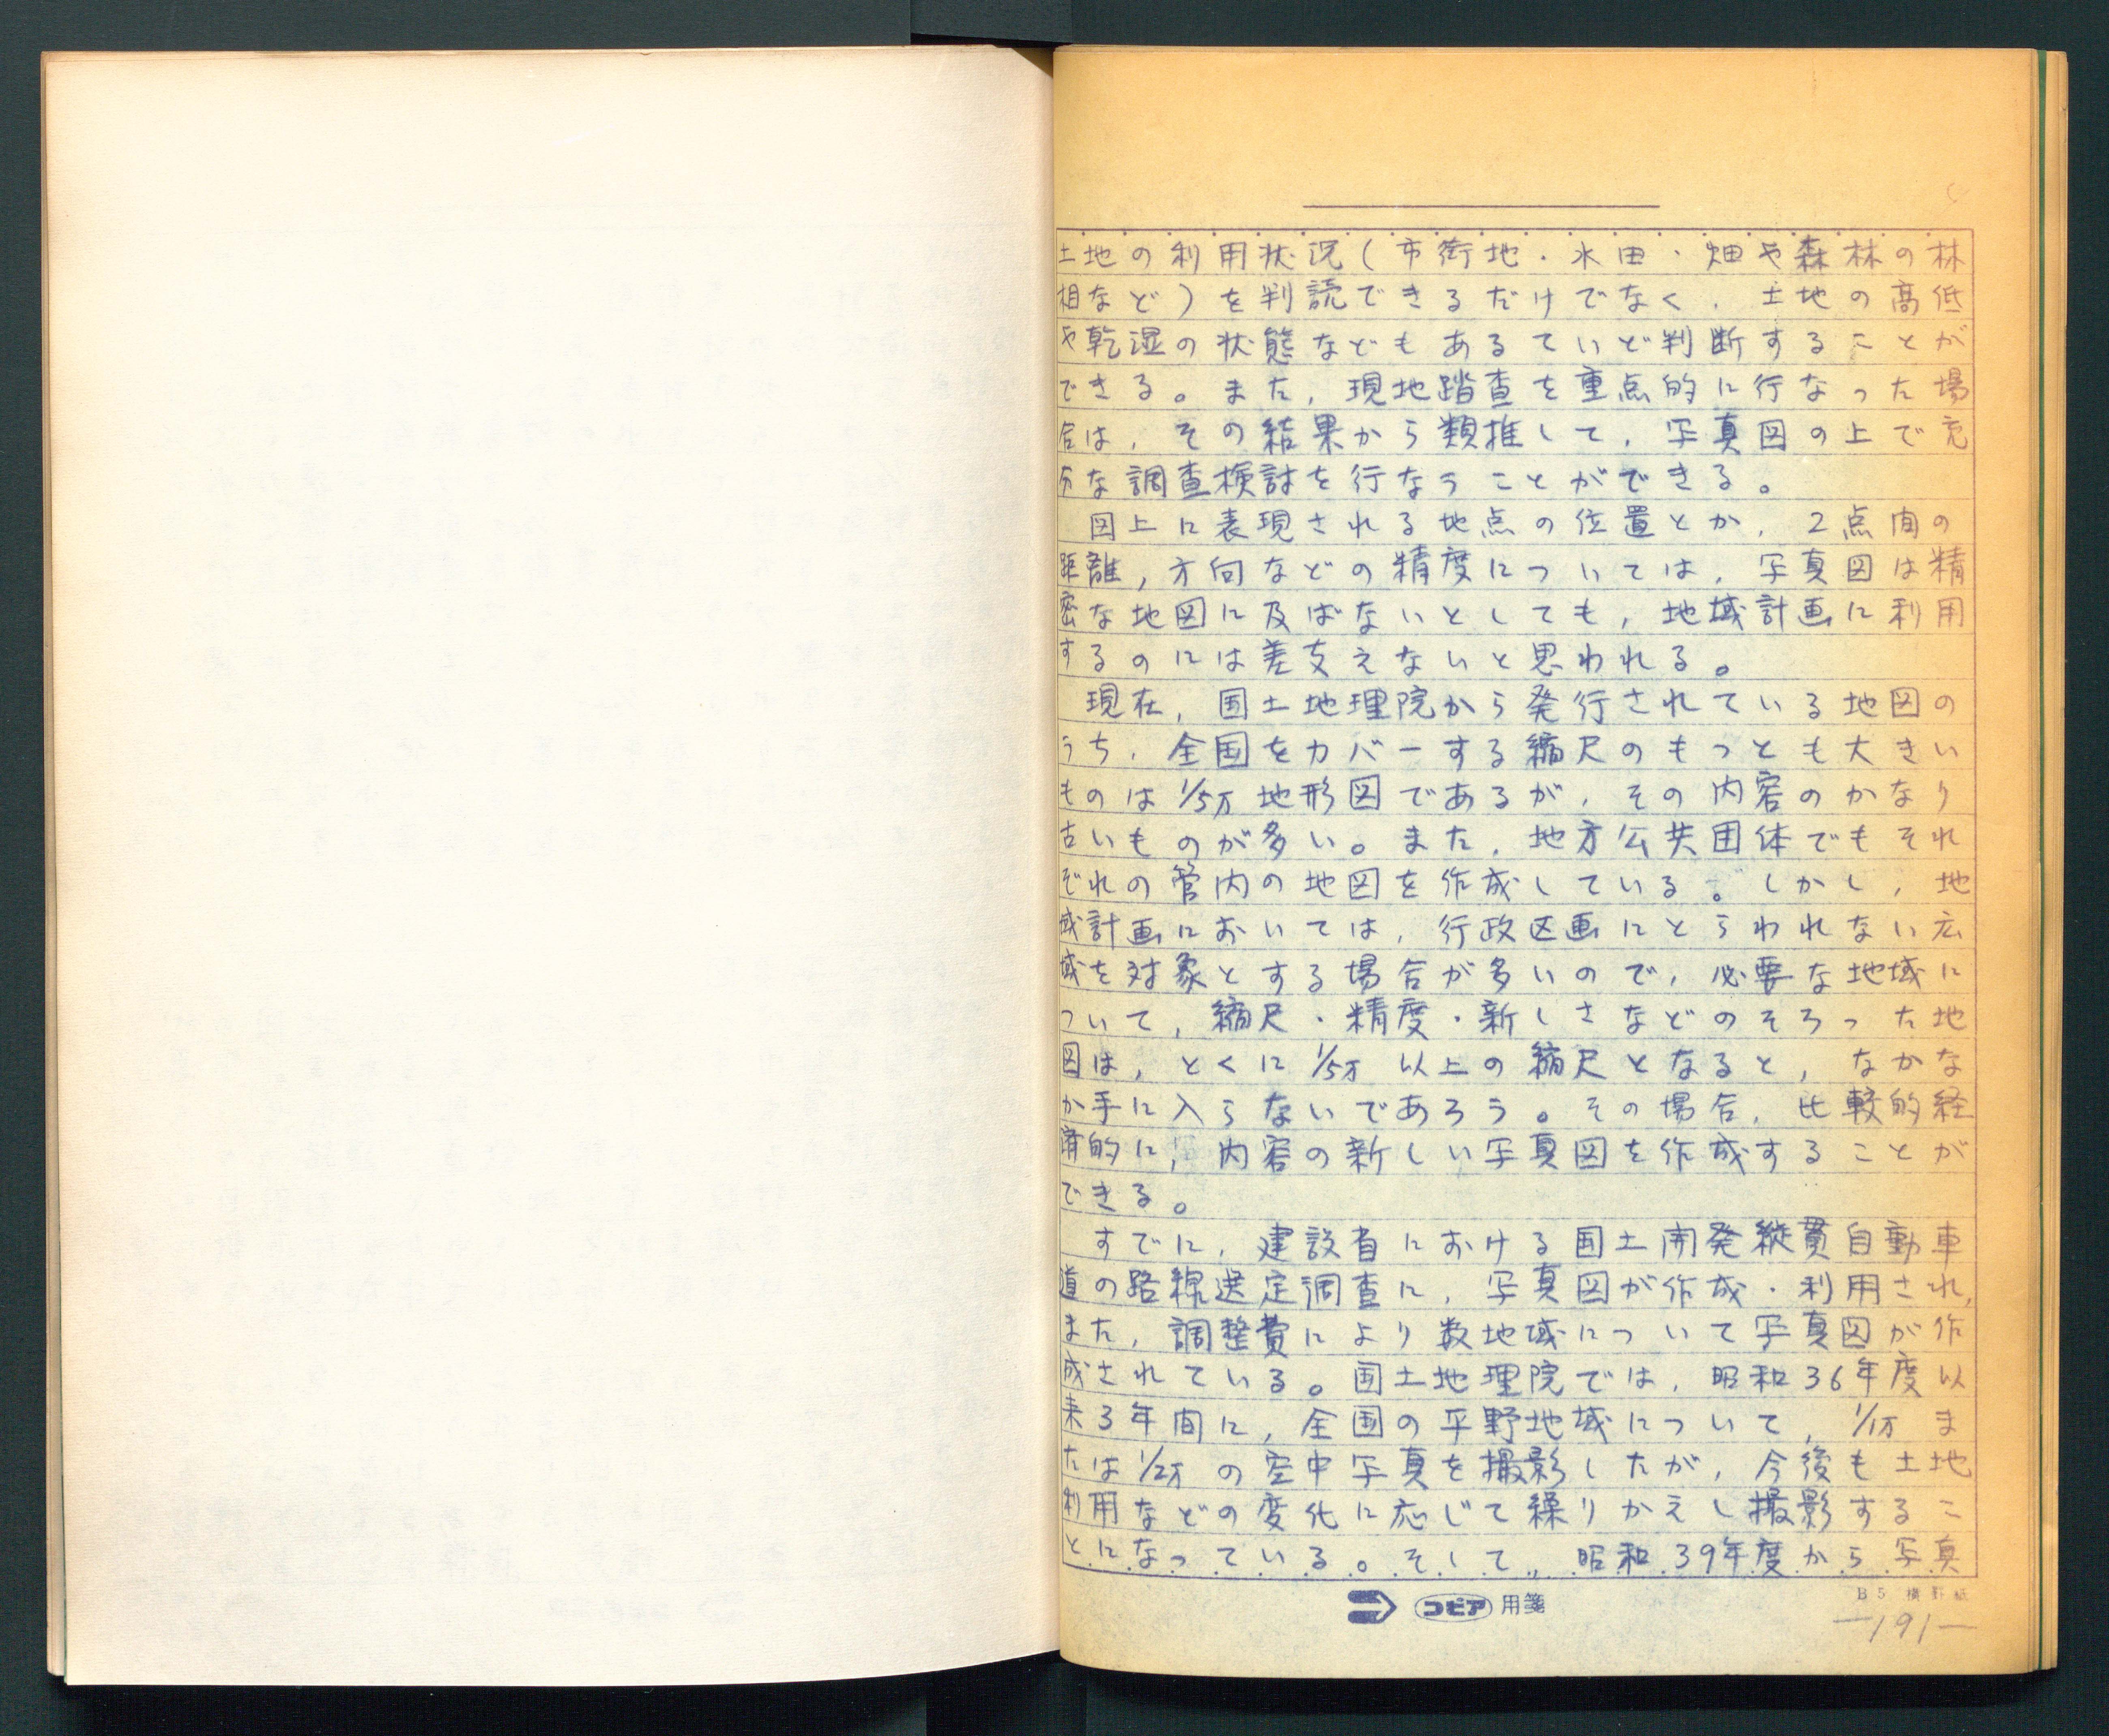 土地の利用状況(市街地・水田・畑や森林の林
相など)を判読できるだけでなく,土地の高低
や乾湿の状態などもあるていど判断することが
できる。また,現地踏査を重点的に行なった場
合は,その結果から類推して,写真図の上で充
分な調査検討を行なうことができる。
図上に表現される地点の位置とか,2点間の
距離,方向などの精度については,写真図は精
密な地図に及ばないとしても,地域計画に利用
するのには差支えないと思われる。
現在,国土地理院から発行されている地図の
うち,全国をカバーする縮尺のもっとも大きい
ものは1/5万地形図であるが,その内容のかなり
古いものが多い。また,地方公共団体でもそれ
ぞれの管内の地図を作成している。しかし,地
域計画においては,行政区画にとらわれない広
域を対象とする場合が多いので,必要な地域に
ついて,縮尺・精度・新しさなどのそろった地
図は,とくに1/5万以上の縮尺となると,なかな
か手に入らないであろう。その場合,比較的経
済的に,内容の新しい写真図を作成することが
できる。
すでに,建設省における国土開発縦貫自動車
道の路線選定調査に,写真図が作成・利用され,
また,調整費により数地域について写真図が作
成されている。国土地理院では,昭和36年度以
来3年間に,全国の平野地域について,1/1万ま
たは1/2万の空中写真を撮影したが,今後も土地
利用などの変化に応じて繰りかえし撮影するこ
とになっている。そして,昭和39年度から写真
コピア 用箋
B5 横罫紙
—191—